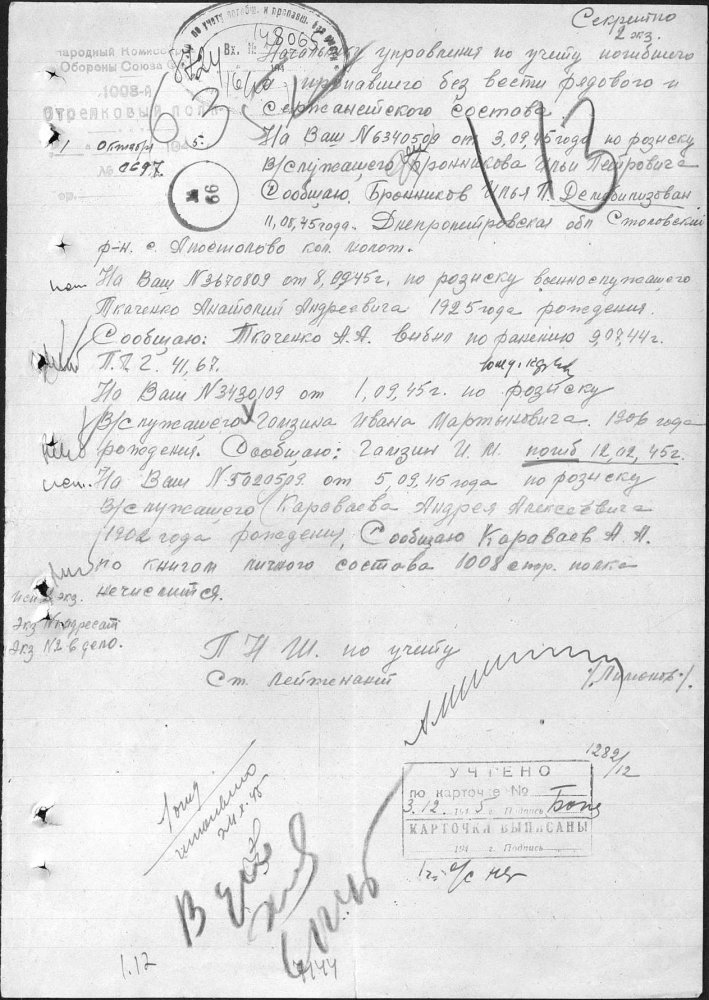 Секретно
2 экз.
по учету погибш. и пропавш. без вести
Вх. №
48065
Народный Комисс
Обороны Союза С
1008-й
Стрелковый полк
1 Октября 5.
№ 0697
66
Начальнику управления по учету погибшего
и пропавшего без вести рядового и
сержанетского состава
На Ваш №6340509 от 3,09,45 года по розиску
В/служащего Бронникова Ильи Петровича
Сообщаю, Бронников Илья П. Демобилизован
11,08,45 года. Днепропетровская обл Столовский
р-н. с. Апостолово кол. молот.
На Ваш №3670809 от 8,0945г. по розиску военнослужашего
Ткаченко Анатолий Андреевича 1925 года рождения.
Сообщаю: Ткаченко А.А. выбил по ранению 9,07,44г.
П.П.Г. 41,67.
На Ваш №3430109 от 1,09,45г. по розыску
В/служашего Гамзина Ивана Мартыновича. 1906 года
рождения. Сообщаю: Гамзин И.М. погиб 12,02,45г.
На Ваш №5020509 от 5,09,45 года по розиску
В/служашего Караваева Андрея Алексеевича
1902 года рождения, Сообщаю Караваев А.А.
по книгам личного состава 1008 стр. полка
нечислится.
исп 2 экз.
Экз №1 адресат
Экз №2 в дело.
П Н Ш. по учету
Ст. Лейтенант
/Лимонов/.
1282/12
УЧТЕНО
по карточке No
3.12. 194 5 г. Подпись
КАРТОЧКИ ВЫПИСАНЫ
194 г. Подпись
113
1.12
7144